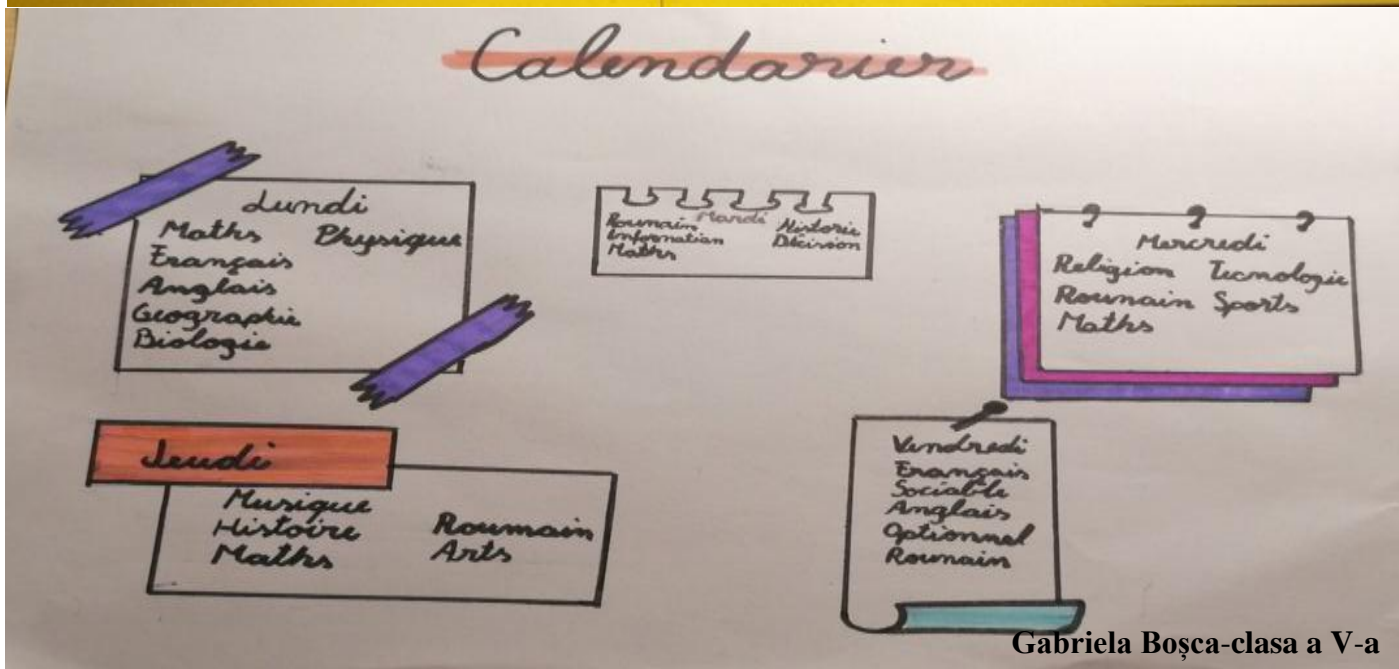 Calendarier
Lundi
Maths Physique
Français
Anglais
Geographie
Biologie
Mardi
Roumain Historie
Information Décision
Maths
Mercredi
Religion Tecnologie
Roumain Sports
Maths
Jeudi
Musique
Histoire Roumain
Maths Arts
Vendredi
Français
Sociable
Anglais
Optionnel
Roumain
Gabriela Boșca-clasa a V-a